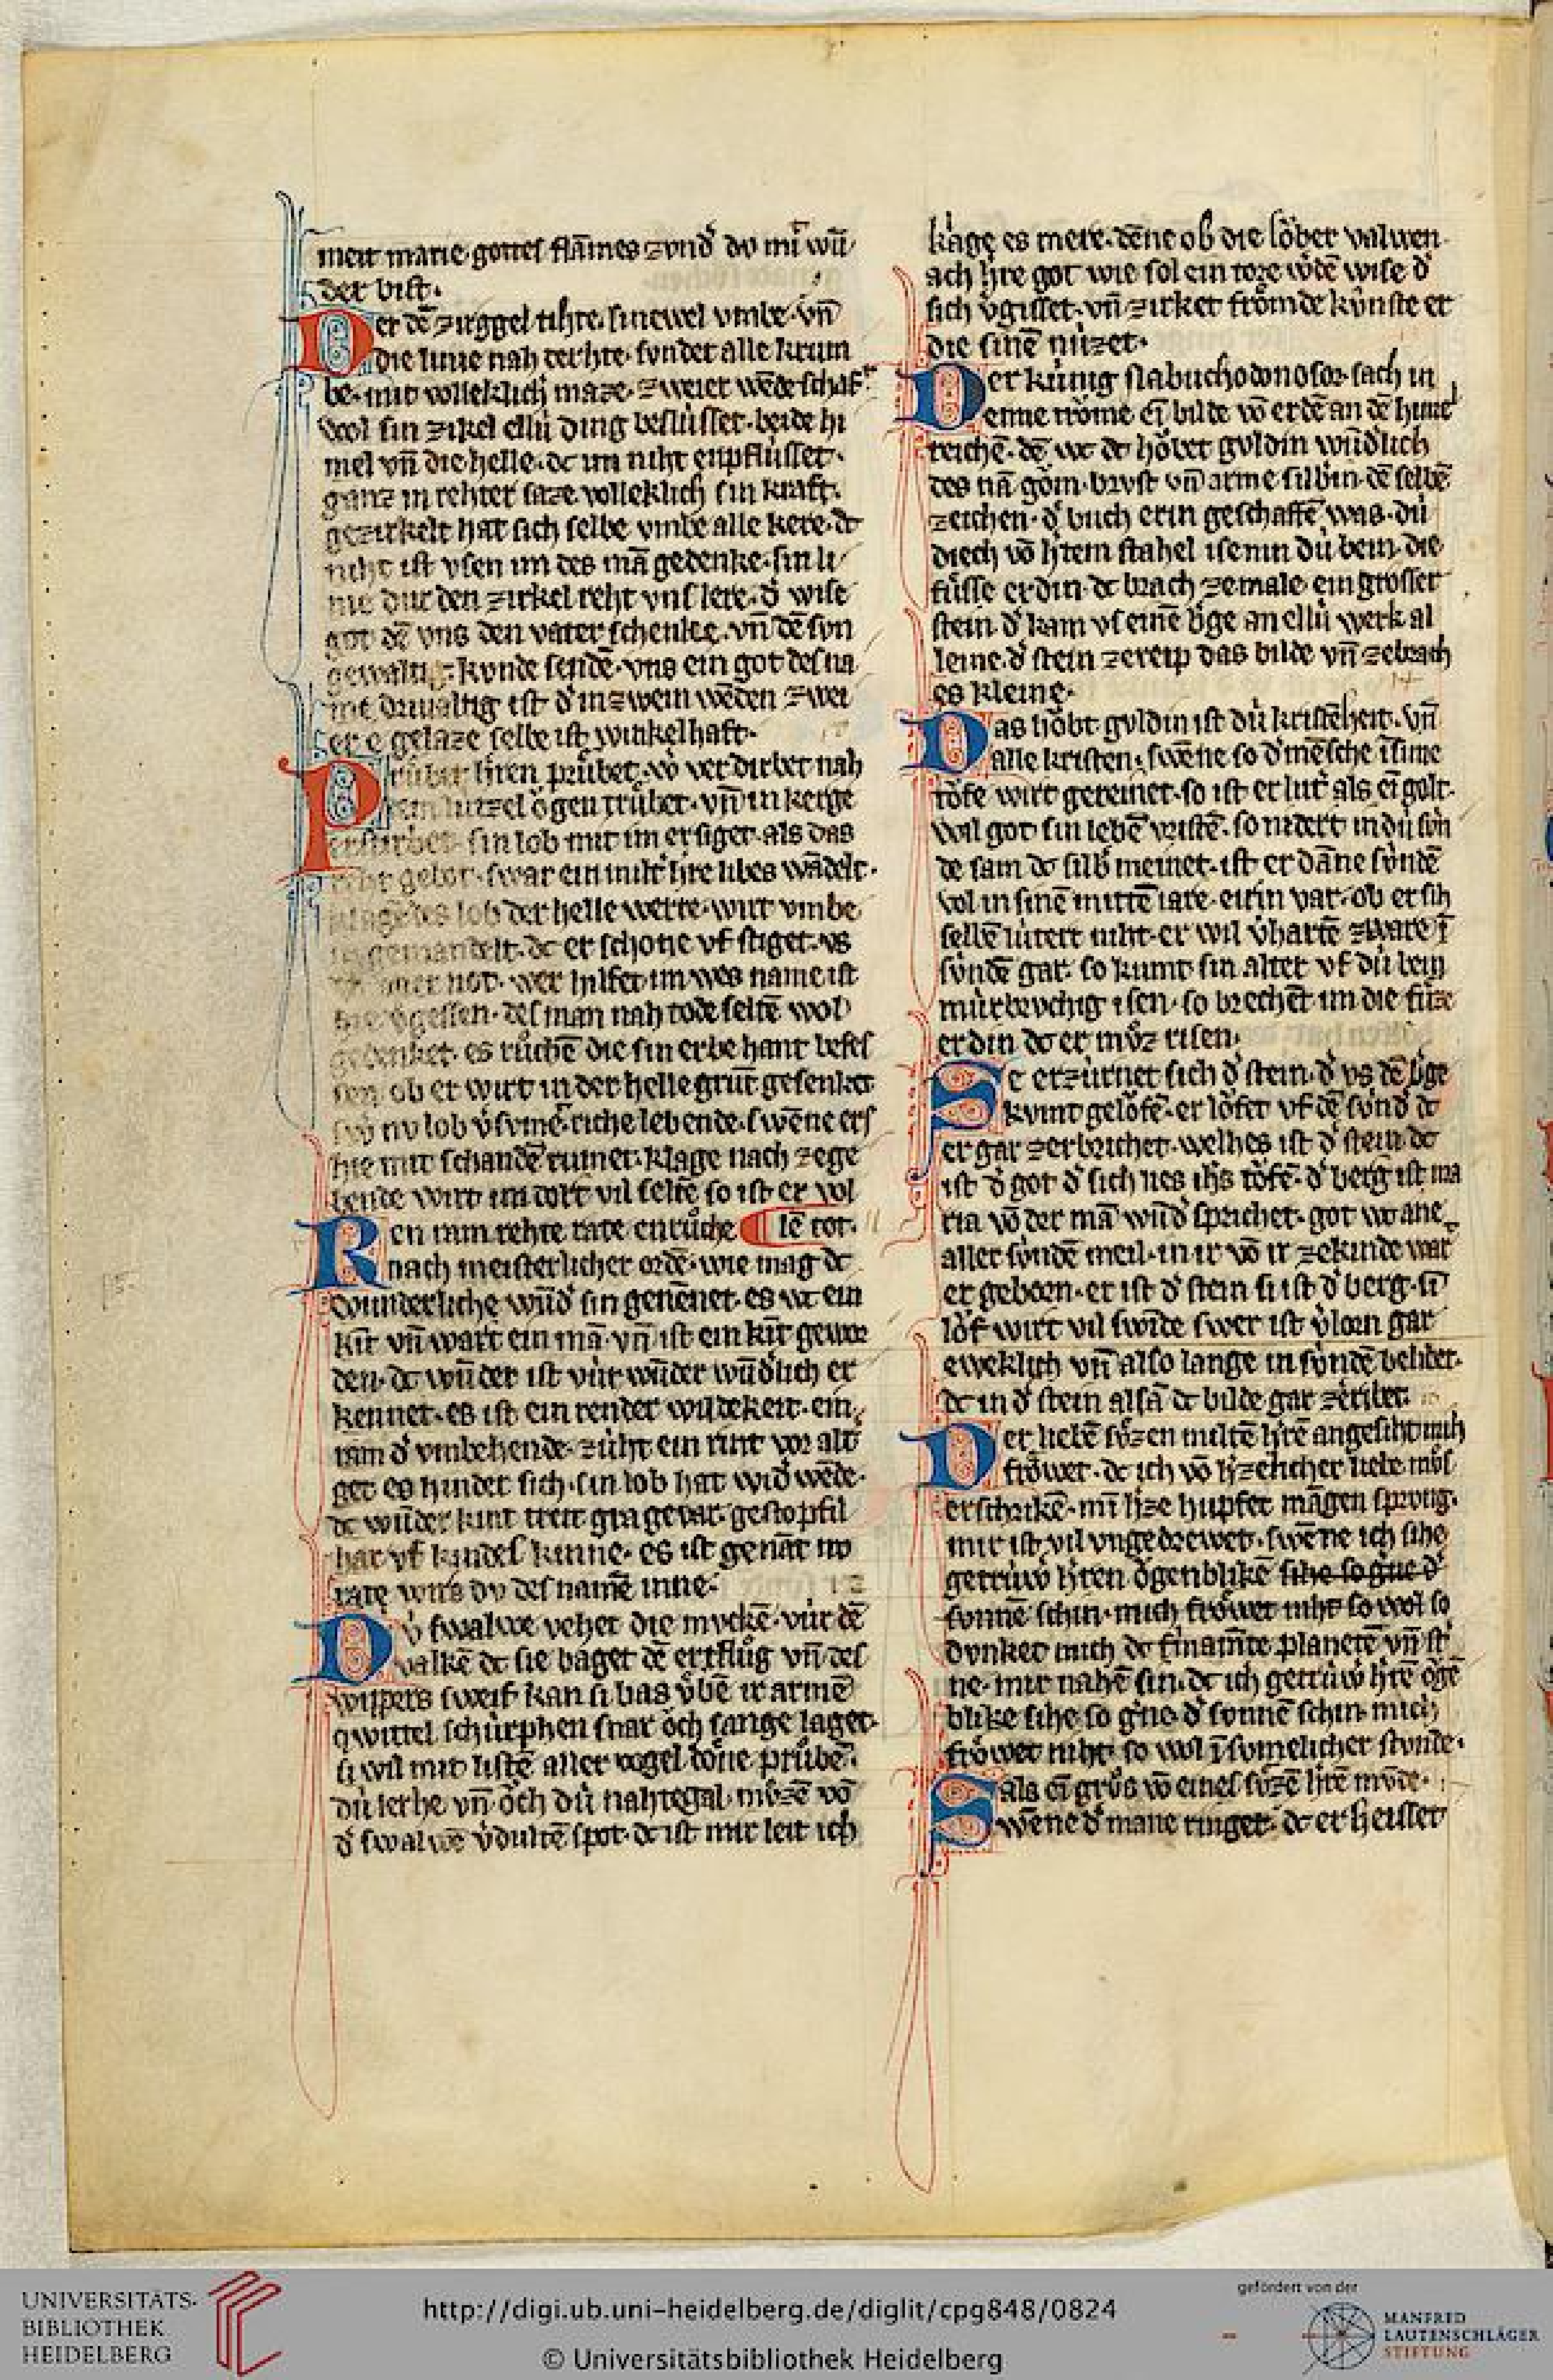 meit marie gottes flām̄es zund͛ dv mī wū
der bist.
Der dē zirggel rihte sinewel vmbe. vn̄
die linie nah rehte. sunder alle krum
be. mit volleklich maze. zweier wēde schaft
wol sin zikel ellú ding beslússet. beide hi
mel vn̄ die helle. dc im niht enpflússet.
ganz in rehter saze volleklich sin kraft.
gezirkelt hat sich selbe vmbe alle kere. dc
niht ist vsen im des mā gedenke. sin li
nie dur den zirkel reht vns lere. d͛ wise
got dē vns den vater schenke. vn̄ dē svn
gewaltig kvnde sendē. vns ein got des na
me drivaltig ist d͛ in zwein wēden zwei
er e gelaze selbe ist winkelhaft.
Prúber h͛ren prúbet. wo verdirbet nah
ein lúzzel ögen trúbet. vn̄ in kerge
erstirbet sin lob mit im er siget. als das
reht gebot. swar ein milt h͛re libes wādelt.
klage des lob der helle werre. wirt vmbe
gemandelt. dc er schone vf stiget. vs
not. wer hilfet im wes name ist
hie v͛gessen. des man nah tode seltē wol
gedenket. es růchē die sin erbe hant beses
sen. ob er wirt in der helle grūt gesenket
swo nv lob v͛svmē riche lebende. swēne ers
hie mit schandē rumet. klage nach zege
bende wirt im dort vil seltē so ist er vol
Ren ram rehte rate enrůche ¶ lē tot.
nach meisterlicher ordē. wie mag dc
wunderliche wūd͛ sin genēnet. es wc ein
kīt vn̄ wart ein mā. vn̄ ist ein kīt gewor
den. dc wunder ist vúr wūder wūd͛lich er
kennet. es ist ein render wildekeit. ein
ram d͛ vmbehende. zúht ein rint vor alt͛
get es hinder sich. sin lob hat wid͛ wēde.
dc wūder kint treit gra gevar. gestopfil
har vf kindes kinne. es ist genāt no
rate wirs dv des namē inne.
Dv́ swalwe vehet die mvckē. vúr dē
valkē dc sie baget dē ertflůg vn̄ des
wippers sweif kan si bas v͛bē ir armē
qwittel schúrphen snar öch sange laget.
si wil mit listē aller vogel döne prúbē.
dú lerhe vn̄ öch dú nahtegal. můzē vō
d͛ swalwē v͛dultē spot. dc ist mir leit ich
klage es mere. dēne ob die löber valwen.
ach h͛re got wie sol ein tore w͛dē wise d͛
sich v͛gisset. vn̄ zirket frömde kúnste er
die sinē núzet.
Der kúnig Nabuchodonosor sach in
enne tröme eī bilde vō erdē an dē himel
reichē. dē wc dc höbet guldin wūd͛lich
des nā göm. brvst vn̄ arme silb͛in. dē selbē
zeichen. d͛ buch erin geschaffē was. dú
diech vō h͛tem stahel isenin dú bein. die
fússe erdin. dc brach zemale. ein grosser
stein. d͛ kam vf einē b͛ge an ellú werk al
leine. d͛ stein zereip das bilde vn̄ zebrach
es kleine.
Das höbt guldin ist dú kristēheit. vn̄
alle kristen. swēne so d͛ mēsche ī sime
töfe wirt gereinet. so ist er lut͛ als eī golt.
wil got sin lebē vristē. so nidert in dú sún
de sam dc silb͛ meinet. ist er dāne súndē
vol in sinē mittē iare. eirin var. ob er sih
selbē lútert niht. er wil v͛hartē zware ī
súndē gar. so kumt sin alter vf dú bein
múrbrvchig isen. so brechēt im die fúze
erdin dc er můz risen.
Se erzúrnet sich d͛ stein. d͛ vs dē b͛ge
kvmt gelöfē. er löfet vf dē súnd͛ dc
er gar zerbrichet. welhes ist d͛ stein. dc
ist d͛ got d͛ sich lies ih͛s töfē. d͛ berg ist ma
ria vō der mā wūd͛ sprichet. got wc ane
aller súndē meil. in ir vō ir zekinde wart
er geborn. er ist d͛ stein si ist d͛ berg. sī
löf wirt vil swīde swer ist v͛lorn gar
eweklich vn̄ also lange in súndē belibet.
dc in d͛ stein alsā dc bilde gar zēribet.
Der liebē sůzen miltē h͛rē angesiht mih
fröwet. dc ich vō h͛zeclicher liebe můs
erschrikē. mī h͛ze hupfet māgen sprong.
mir ist vil vngedrewet. swēne ich sihe
getrúw͛ h͛ren ögenblikē sihe so gne d͛
sonnē schin. mich fröwet niht so wol so
dvnket mich dc sinamte planetē vn̄ st͛
ne. mir nahē sin. dc ich getrúw͛ h͛rē ögē
blike sihe so gne. d͛ sonnē schin mich
fröwet niht so wol ī svmelicher stvnde.
als eī grůs vō eines sůzē h͛rē mvnde.
Swēne d͛ mane ringet. dc er heisset
UNIVERSITÄTS-
BIBLIOTHEK
HEIDELBERG
http://digi.ub.uni-heidelberg.de/diglit/cpg848/0824
© Universitätsbibliothek Heidelberg
gefördert von der
MANFRED
LAUTENSCHLÄGER
STIFTUNG